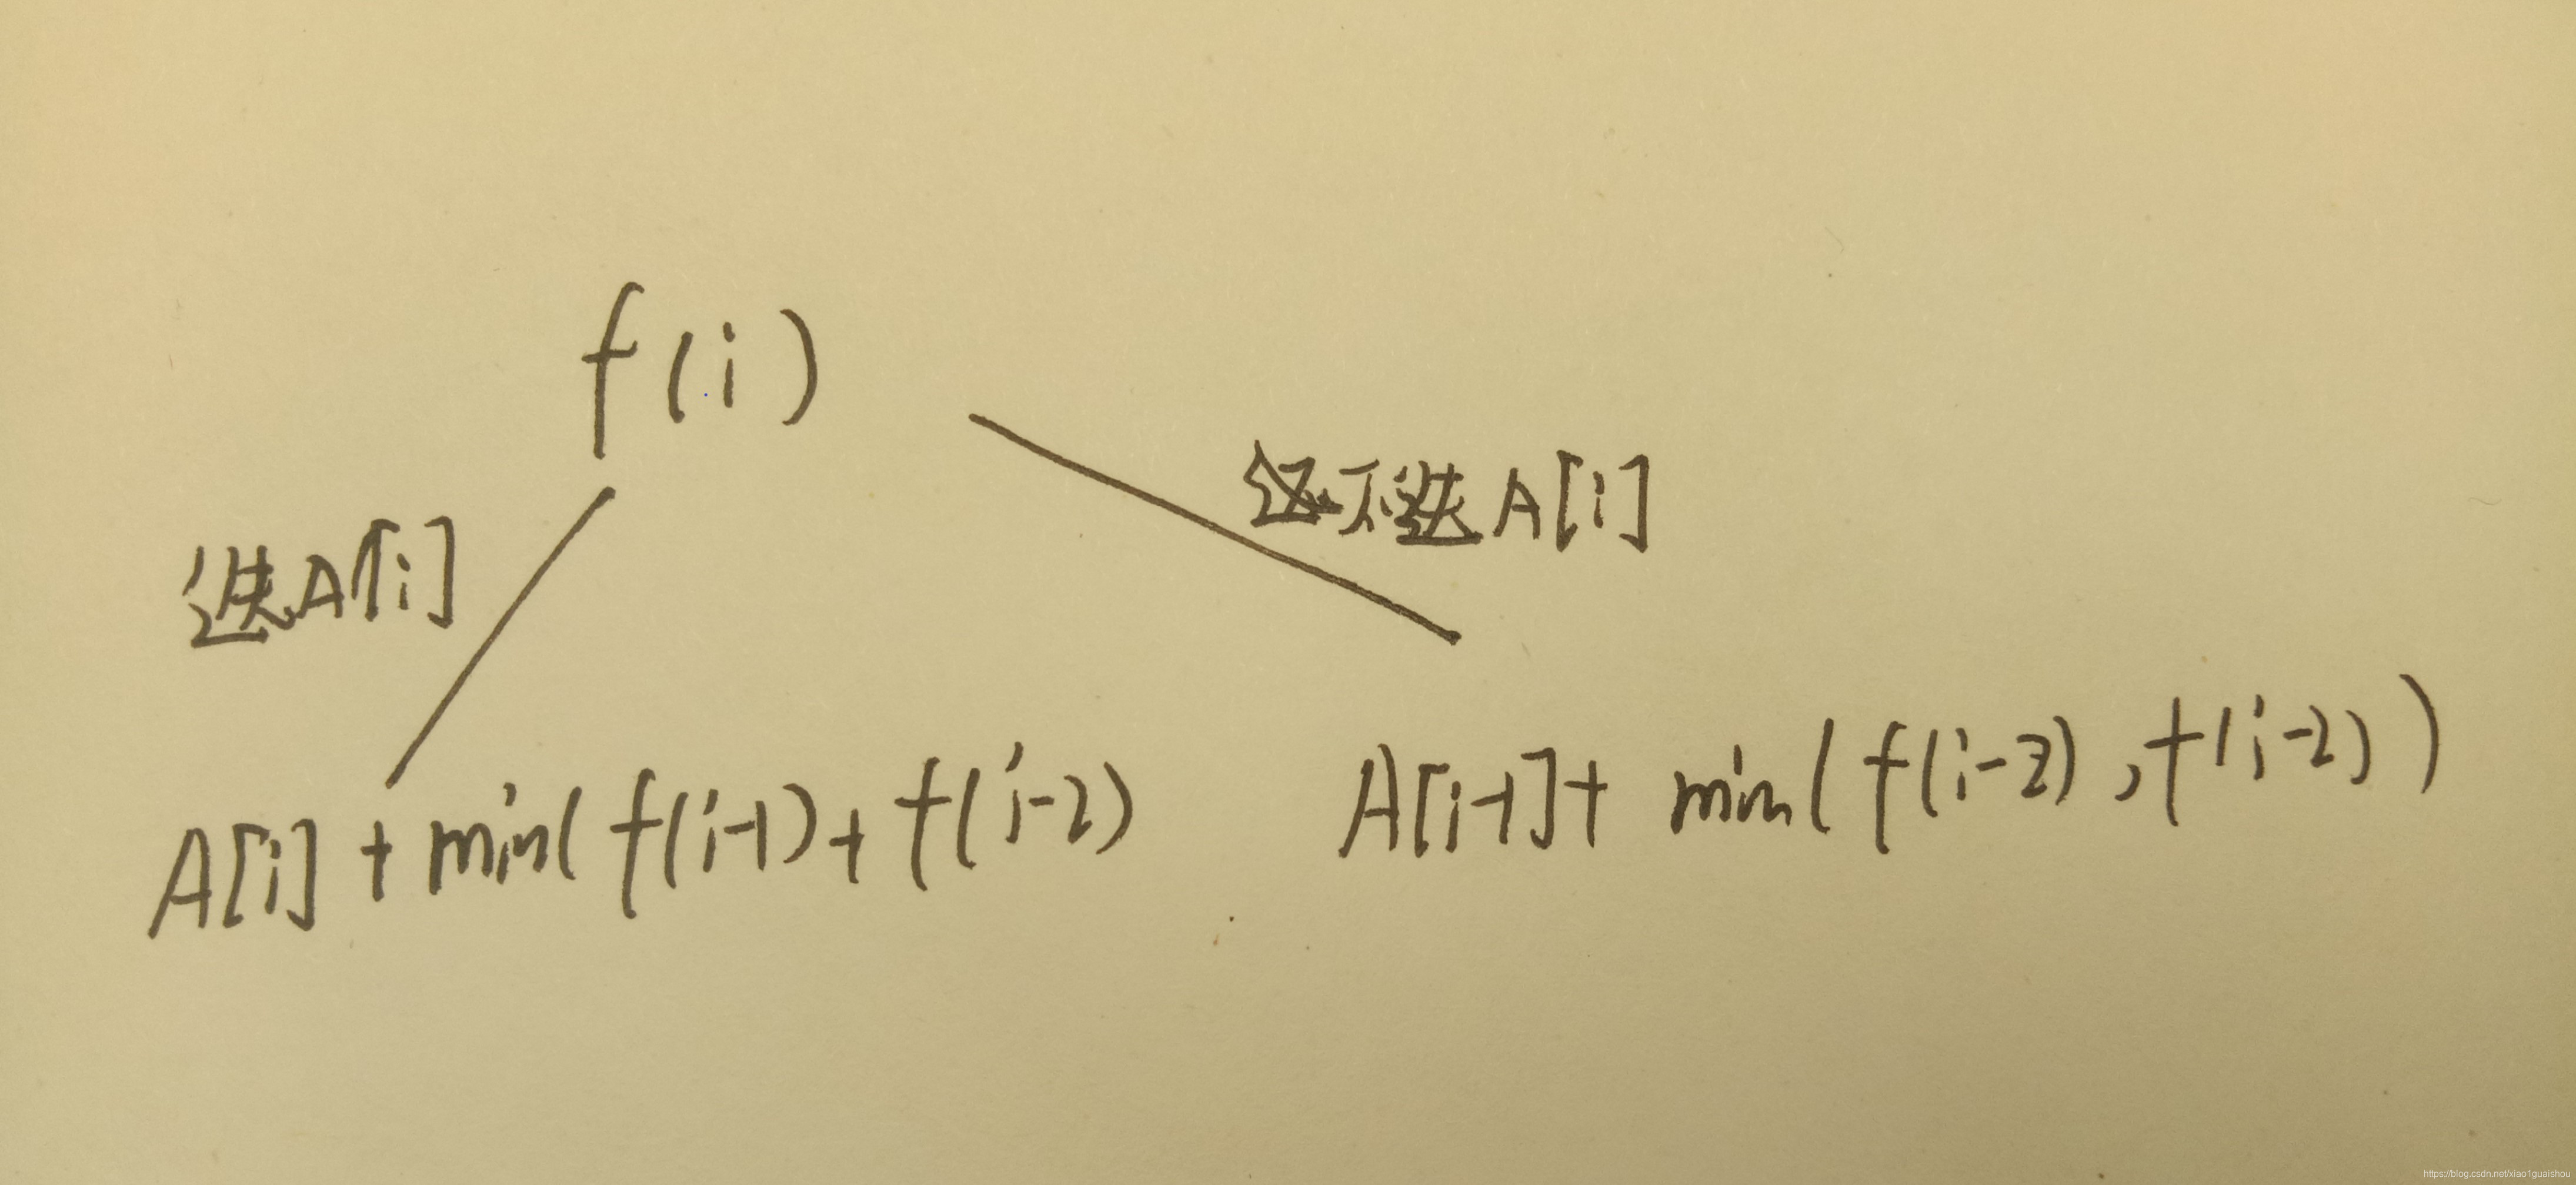 f(i)
不选A[i]
选A[i]
A[i-1]+ min(f(i-2),f(i-2))
A[i] + min(f(i-1)+f(i-2)
https://blog.csdn.net/xiao1guaishou